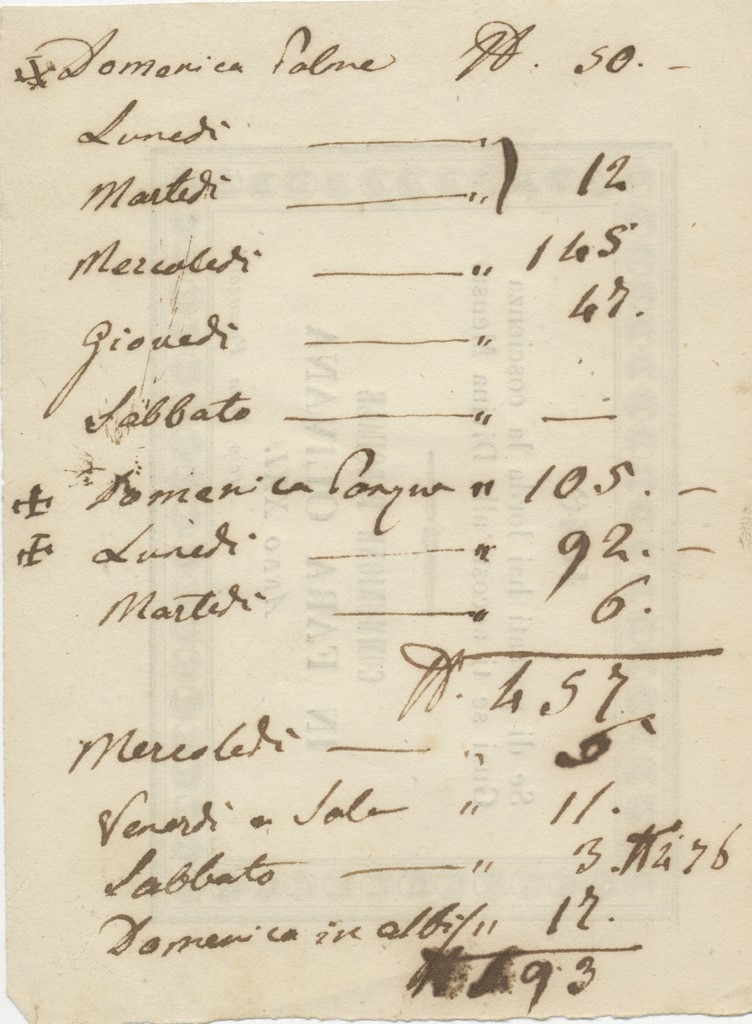 ✠ Domenica Palme N. 50. –
Lunedi — "
Martedi — " } 12
Mercoledi — " 145
Giovedi — " 47.
Sabbato — " —
✠ Domenica Pasqua " 105. –
✠ Lunedi — " 92. –
Martedi — " 6.
N. 457
Mercoledi — " 5
Venerdi " 11.
Sabbato — " 3. N. 476
Domenica in albis " 17.
N. 493